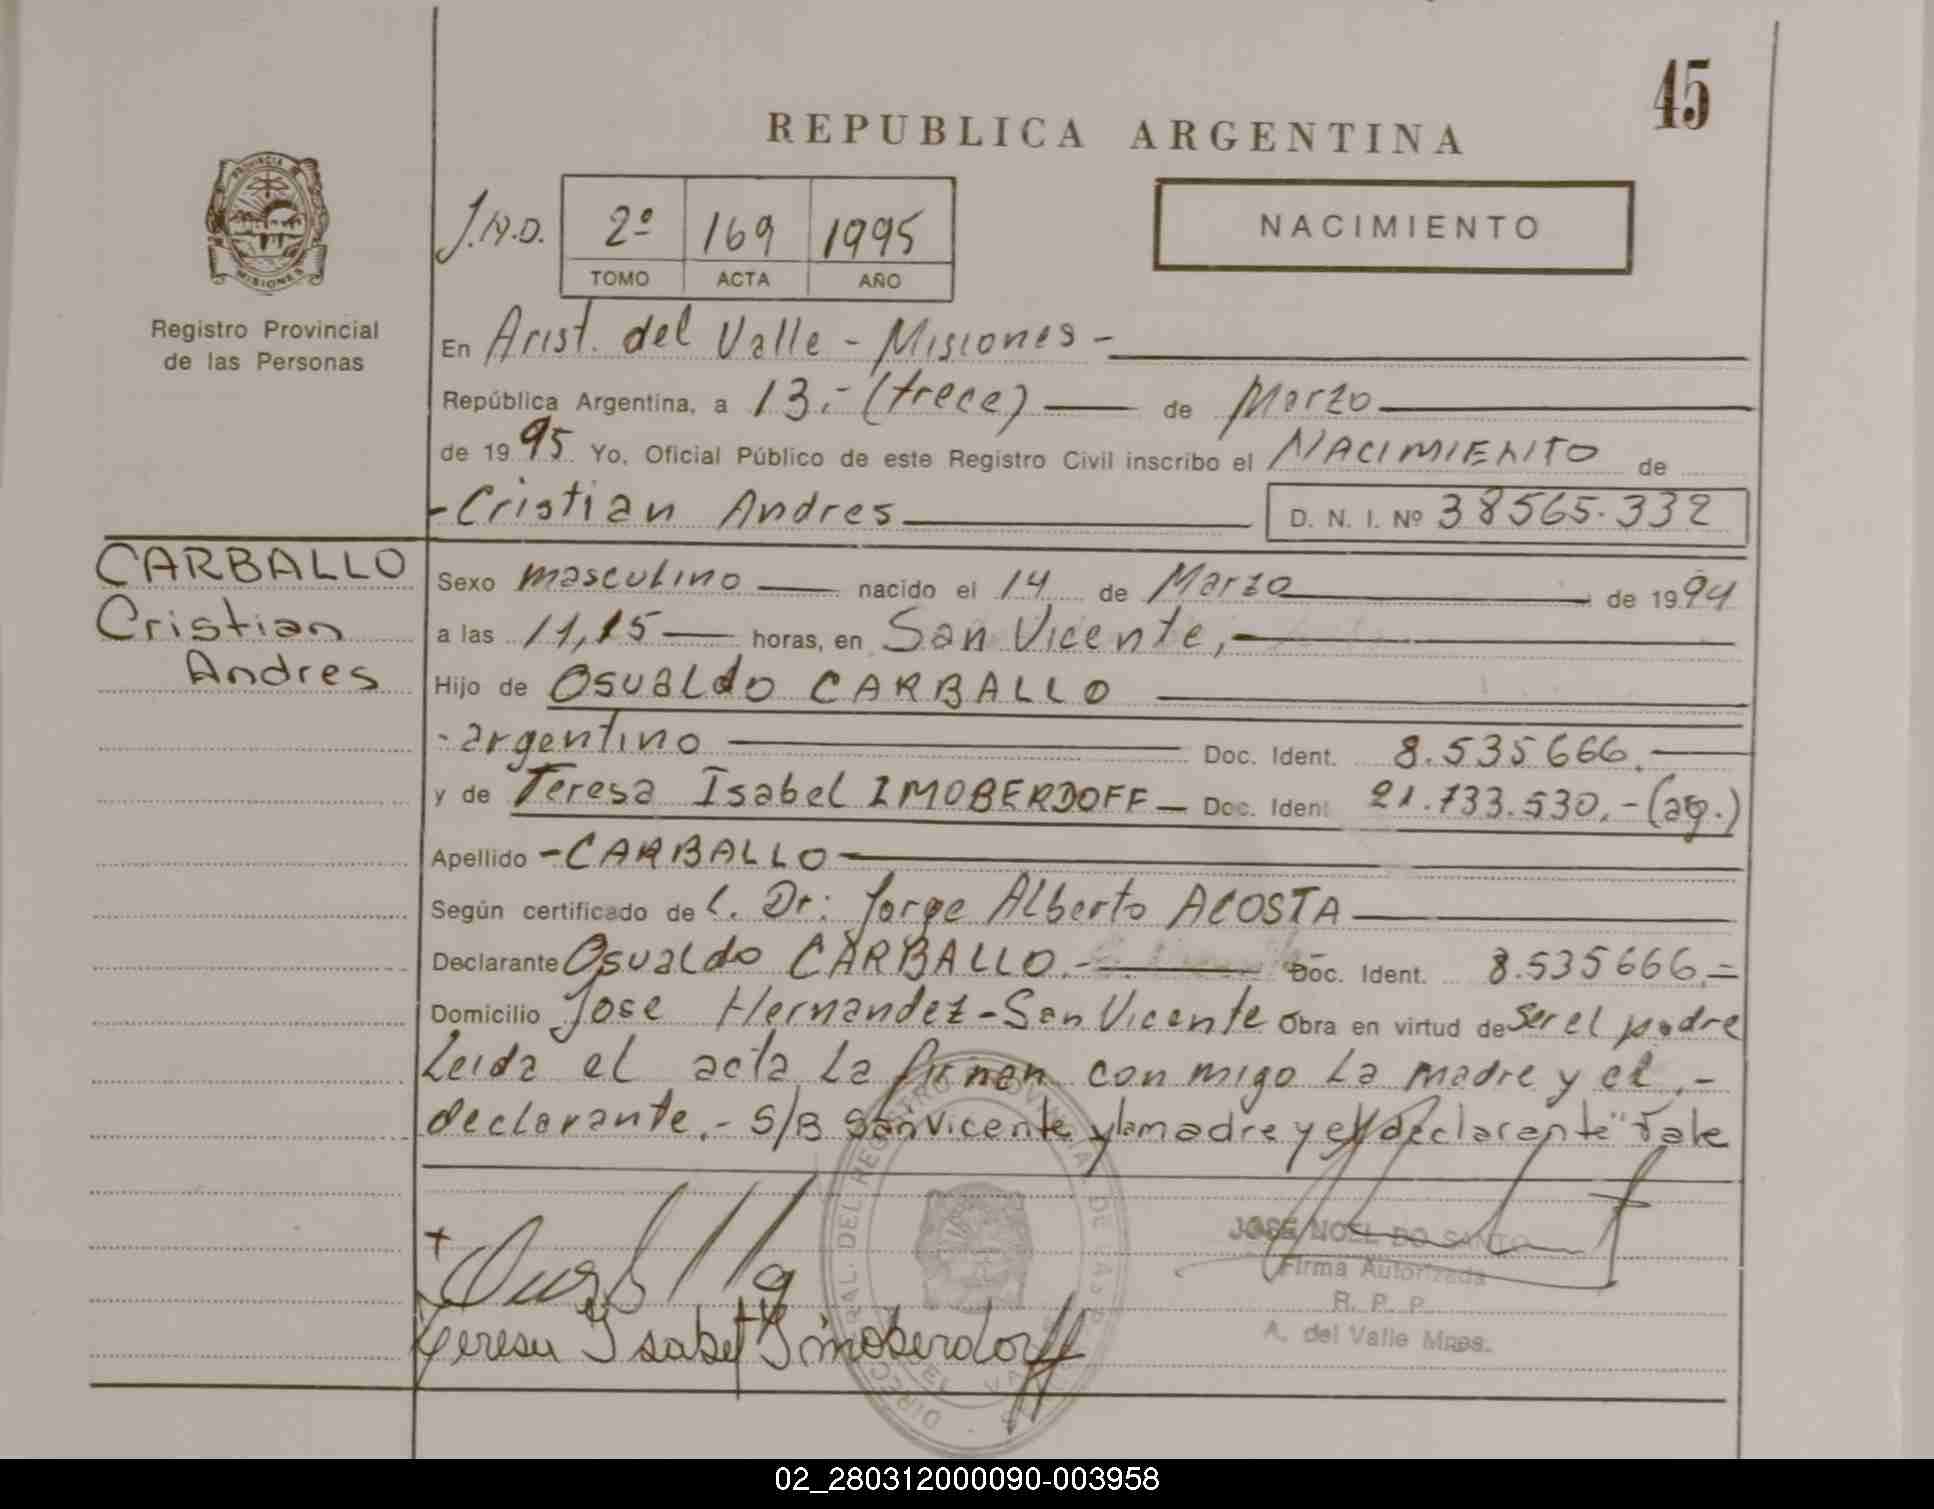 45
REPUBLICA ARGENTINA
PROVINCIA
MISIONES
Registro Provincial
de las Personas
2º 169 1995
TOMO ACTA AÑO
NACIMIENTO
En Arist. del Valle - Misiones -
República Argentina, a 13.- (trece) de Marzo
de 1995 Yo, Oficial Público de este Registro Civil inscribo el NACIMIENTO de
- Cristian Andres D. N. I. Nº 38565.332
CARBALLO
Cristian
Andres
Sexo masculino nacido el 14 de Marzo de 1994
a las 11,15 horas, en San Vicente,
Hijo de Osualdo CARBALLO
- argentino Doc. Ident. 8.535666.
y de Teresa Isabel IMOBERDOFF - Doc. Ident 21.733.530.- (ag.)
Apellido - CARBALLO
Según certificado de l. Dr: Jorge Alberto ACOSTA
Declarante Osualdo CARBALLO.- Doc. Ident. 8.535666.=
Domicilio Jose Hernandez - San Vicente Obra en virtud de ser el padre
Leida el acta La firman con migo La madre y el.-
declarante.- S/B San Vicente y la madre y el declarante" Vale
JOSE NOEL DO SANTO
Firma Autorizada
R. P. P.
A. del Valle Mnes.
Teresa Isabel Imoberdorff
02_280312000090-003958